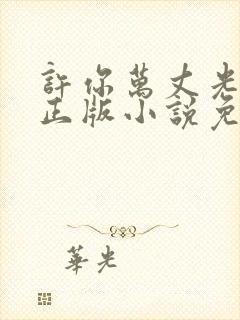 許你萬丈光
正版小說免
華光